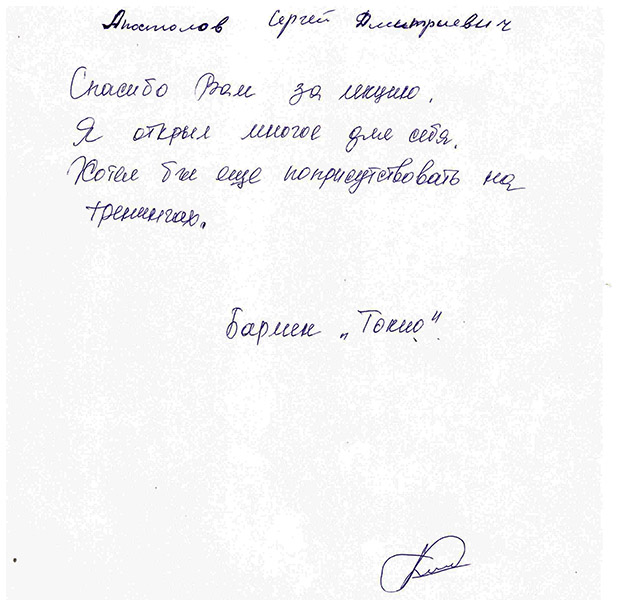 Апостолов Сергей Дмитриевич
Спасибо Вам за лекцию.
Я открыл многое для себя.
Хотел бы еще поприсутствовать на
тренингах.
Бармен „Токио"